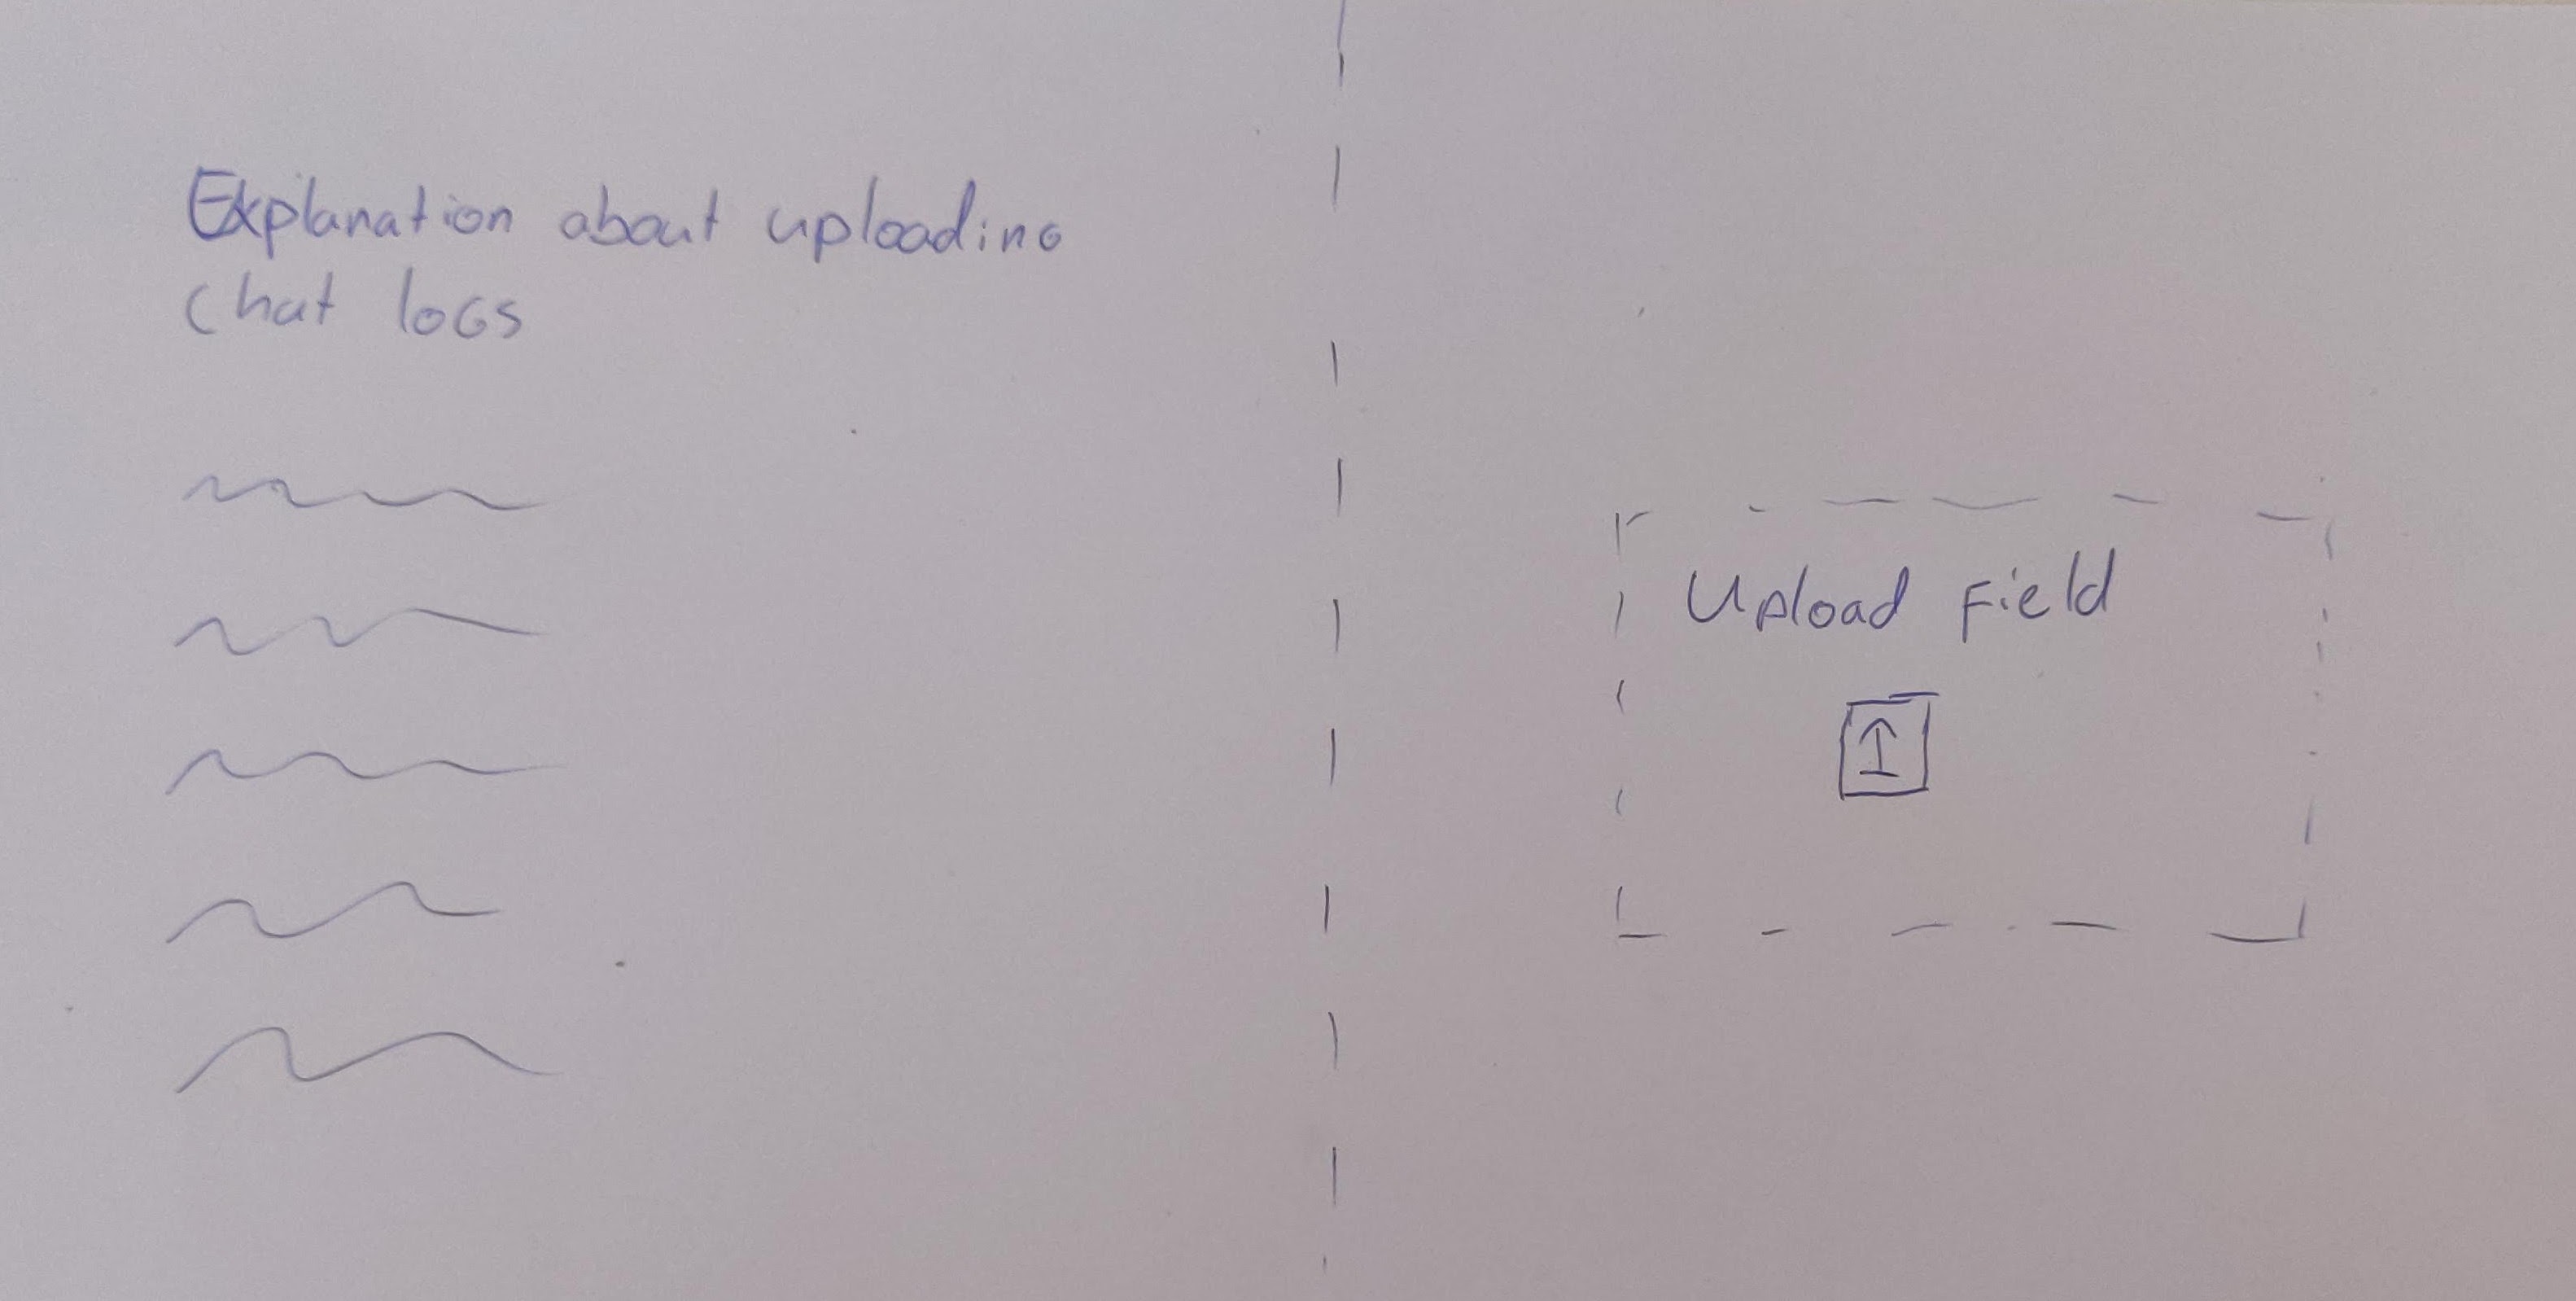 Explanation about uploading
chat logs
Upload Field